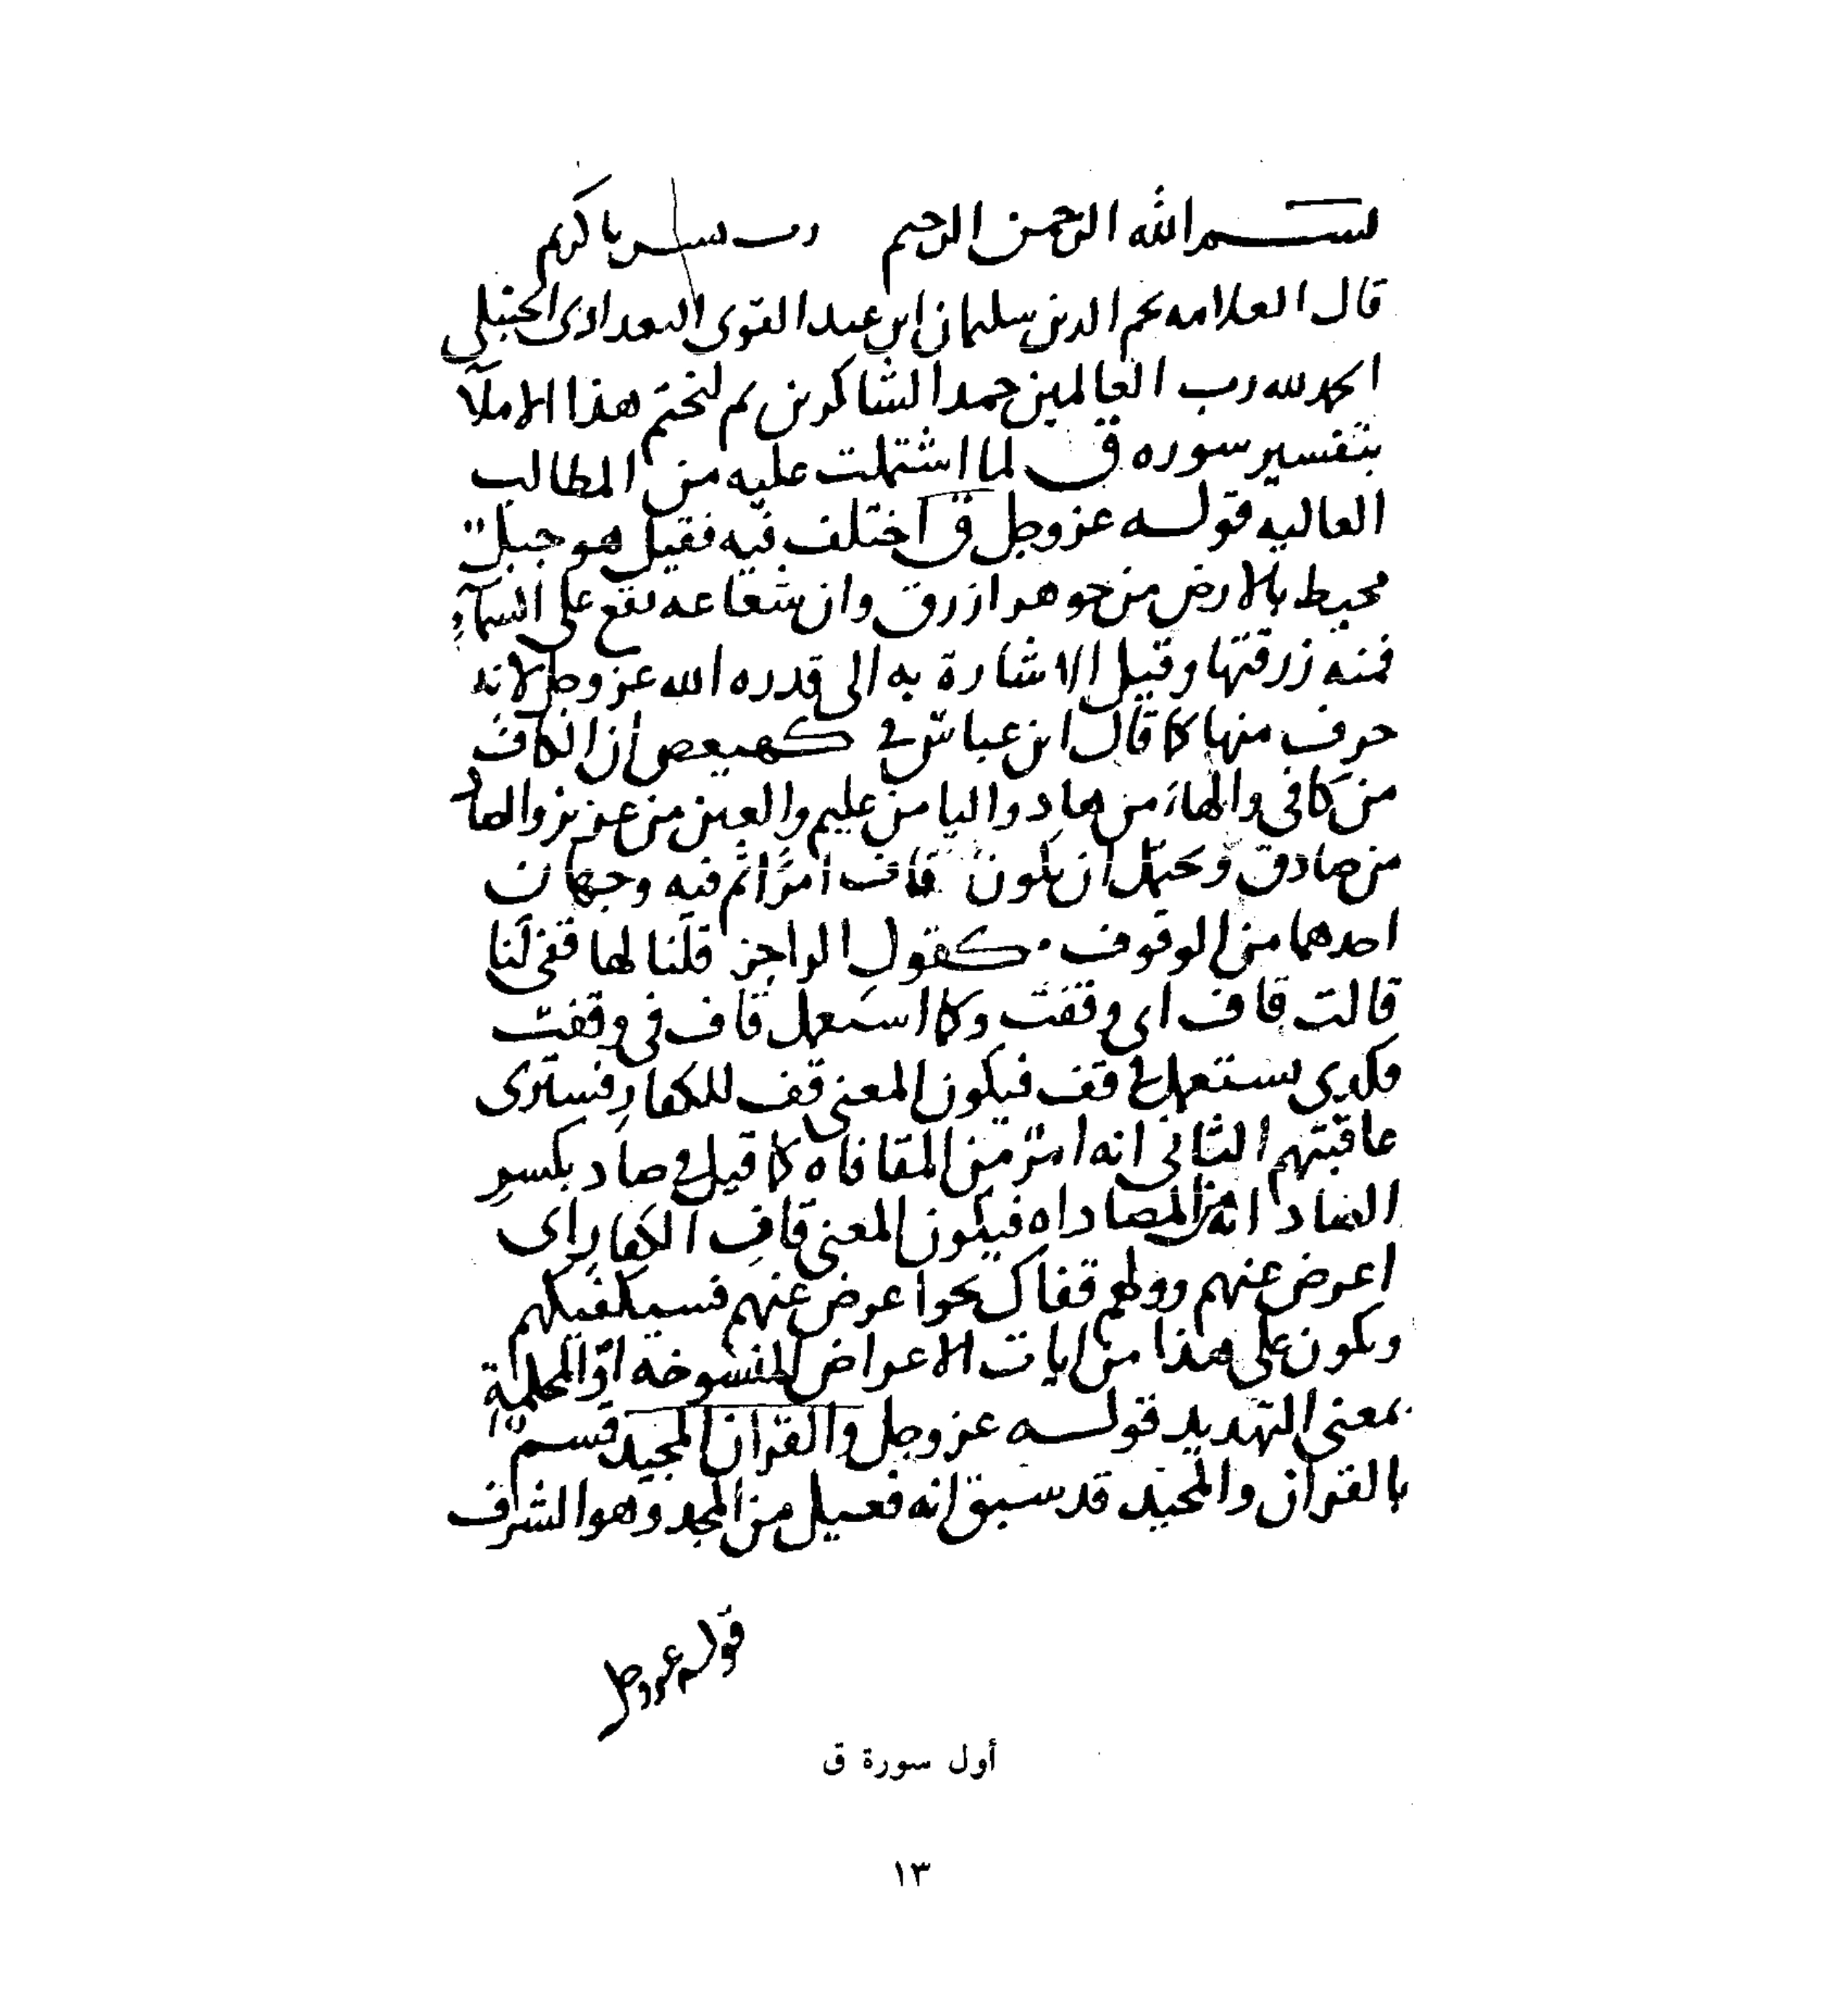 بسم الله الرحمن الرحيم رب يسر يا كريم
قال العلامه نجم الدين سليمان ابن عبد القوى البغدادى الحنبلى
الحمد لله رب العالمين حمد الشاكرين ثم لنختم هذا الاملآ
بتفسير سوره ق لما اشتملت عليه من المطالب
العاليه قوله عز وجل ق اختلف فيه فقيل هو جبل
محيط بالارض من جوهر ازرق وان شعاعه يقع على السمآء
فمنه زرقتها وقيل الاشارة به الى قدره الله عز وجل لانه
حرف منها كما قال ابن عباس في كهيعص ان الكاف
من كافى والهاء من هاد واليا من عليم والعين من عزيز والصاد
من صادق ويحتمل ان يكون قاف امرا ثم فيه وجهان
احدهما من الوقوف كقول الراجز قلنا لها قفى لنا
قالت قاف اى وقفت وكما استعمل قاف فى وقفت
فكدى يستعمل في قف فيكون المعنى قف للكفار فسترى
عاقبتهم الثانى انه امر من المقافاه كما قيل في صاد بكسر
الصاد انه من المصاداه فيكون المعنى قاف الكفار اى
اعرض عنهم وولهم قفاك نحو اعرض عنهم فسيكفيكهم
ويكون على هذا من ايات الاعراض المنسوخه او المحكمة
بمعنى التهديد قوله عز وجل والقران المجيد قسم
بالقران والمجيد قد سبق انه فعيل من المجد وهو الشرف
قوله عز وجل
أول سورة ق
١٣